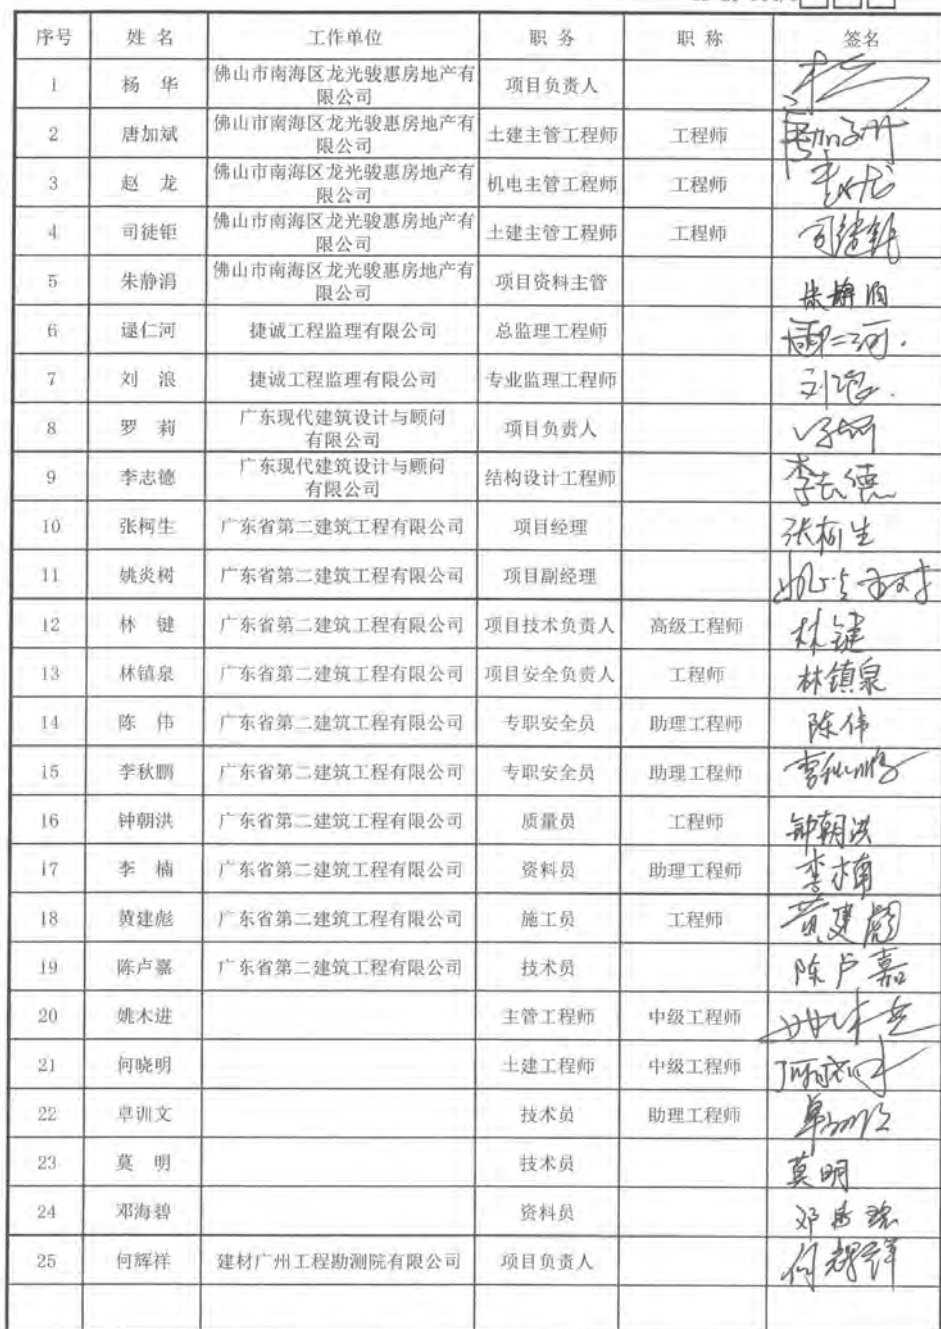 序号 姓 名 工作单位 职 务 职 称 签名
1 杨 华 佛山市南海区龙光骏惠房地产有限公司 项目负责人
2 唐加斌 佛山市南海区龙光骏惠房地产有限公司 土建主管工程师 工程师
3 赵 龙 佛山市南海区龙光骏惠房地产有限公司 机电主管工程师 工程师
4 司徒钜 佛山市南海区龙光骏惠房地产有限公司 土建主管工程师 工程师
5 朱静涓 佛山市南海区龙光骏惠房地产有限公司 项目资料主管
6 逯仁河 捷诚工程监理有限公司 总监理工程师
7 刘 浪 捷诚工程监理有限公司 专业监理工程师 刘浪
8 罗 莉 广东现代建筑设计与顾问有限公司 项目负责人
9 李志德 广东现代建筑设计与顾问有限公司 结构设计工程师 李志德
10 张柯生 广东省第二建筑工程有限公司 项目经理 张柯生
11 姚炎树 广东省第二建筑工程有限公司 项目副经理
12 林 键 广东省第二建筑工程有限公司 项目技术负责人 高级工程师 林键
13 林镇泉 广东省第二建筑工程有限公司 项目安全负责人 工程师 林镇泉
14 陈 伟 广东省第二建筑工程有限公司 专职安全员 助理工程师 陈伟
15 李秋鹏 广东省第二建筑工程有限公司 专职安全员 助理工程师 李秋鹏
16 钟朝洪 广东省第二建筑工程有限公司 质量员 工程师 钟朝洪
17 李 楠 广东省第二建筑工程有限公司 资料员 助理工程师 李楠
18 黄建彪 广东省第二建筑工程有限公司 施工员 工程师 黄建彪
19 陈卢嘉 广东省第二建筑工程有限公司 技术员 陈卢嘉
20 姚木进 主管工程师 中级工程师
21 何晓明 土建工程师 中级工程师
22 卓训文 技术员 助理工程师
23 莫 明 技术员 莫明
24 邓海碧 资料员 邓海碧
25 何辉祥 建材广州工程勘测院有限公司 项目负责人 何辉祥